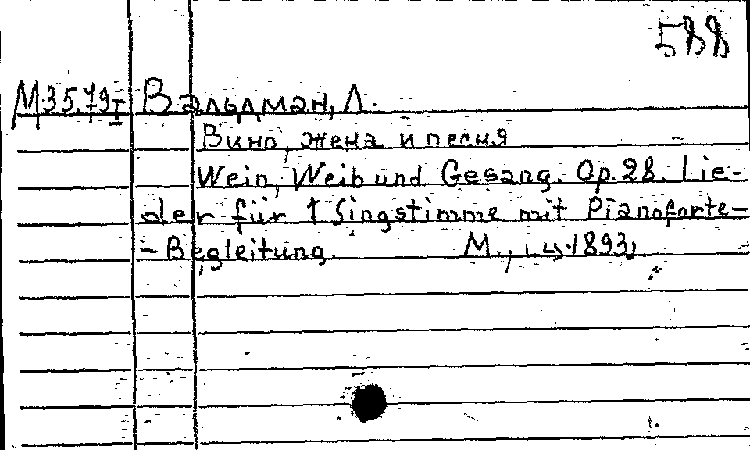 588
М35.79I Вальдман, Л.
Вино, жена и песня
Wein, Weib und Gesang. Op. 28. Lie-
der für 1 Singstimme mit Pianoforte-
- Begleitung. М., ц. 1893,